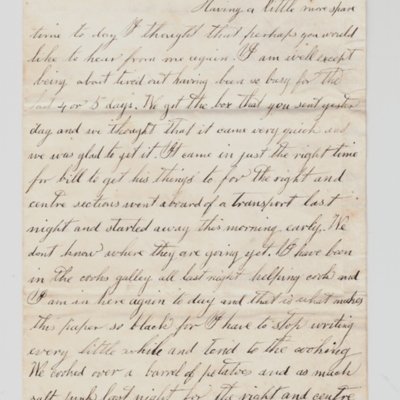 Having a little more spare
time to day I thought that perhaps you would
like to hear from me again. I am well except
being about tired out having been so busy for the
last 4 or 5 days. We got the box that you sent yester
day and we thought that it came very quick and
we was glad to get it. It came in just the right time
for bill to get his things to for the right and
centre sections went aboard of a transport last
night and started away this morning early. We
dont know where they are going yet. I have been
in the cooks galley all last night helping cook and
I am in here again to day and that is what makes
this paper so black for I have to stop writing
every little while and tend to the cooking
We cooked over a barrel of potatoes and as much
salt junk last night for the right and centre